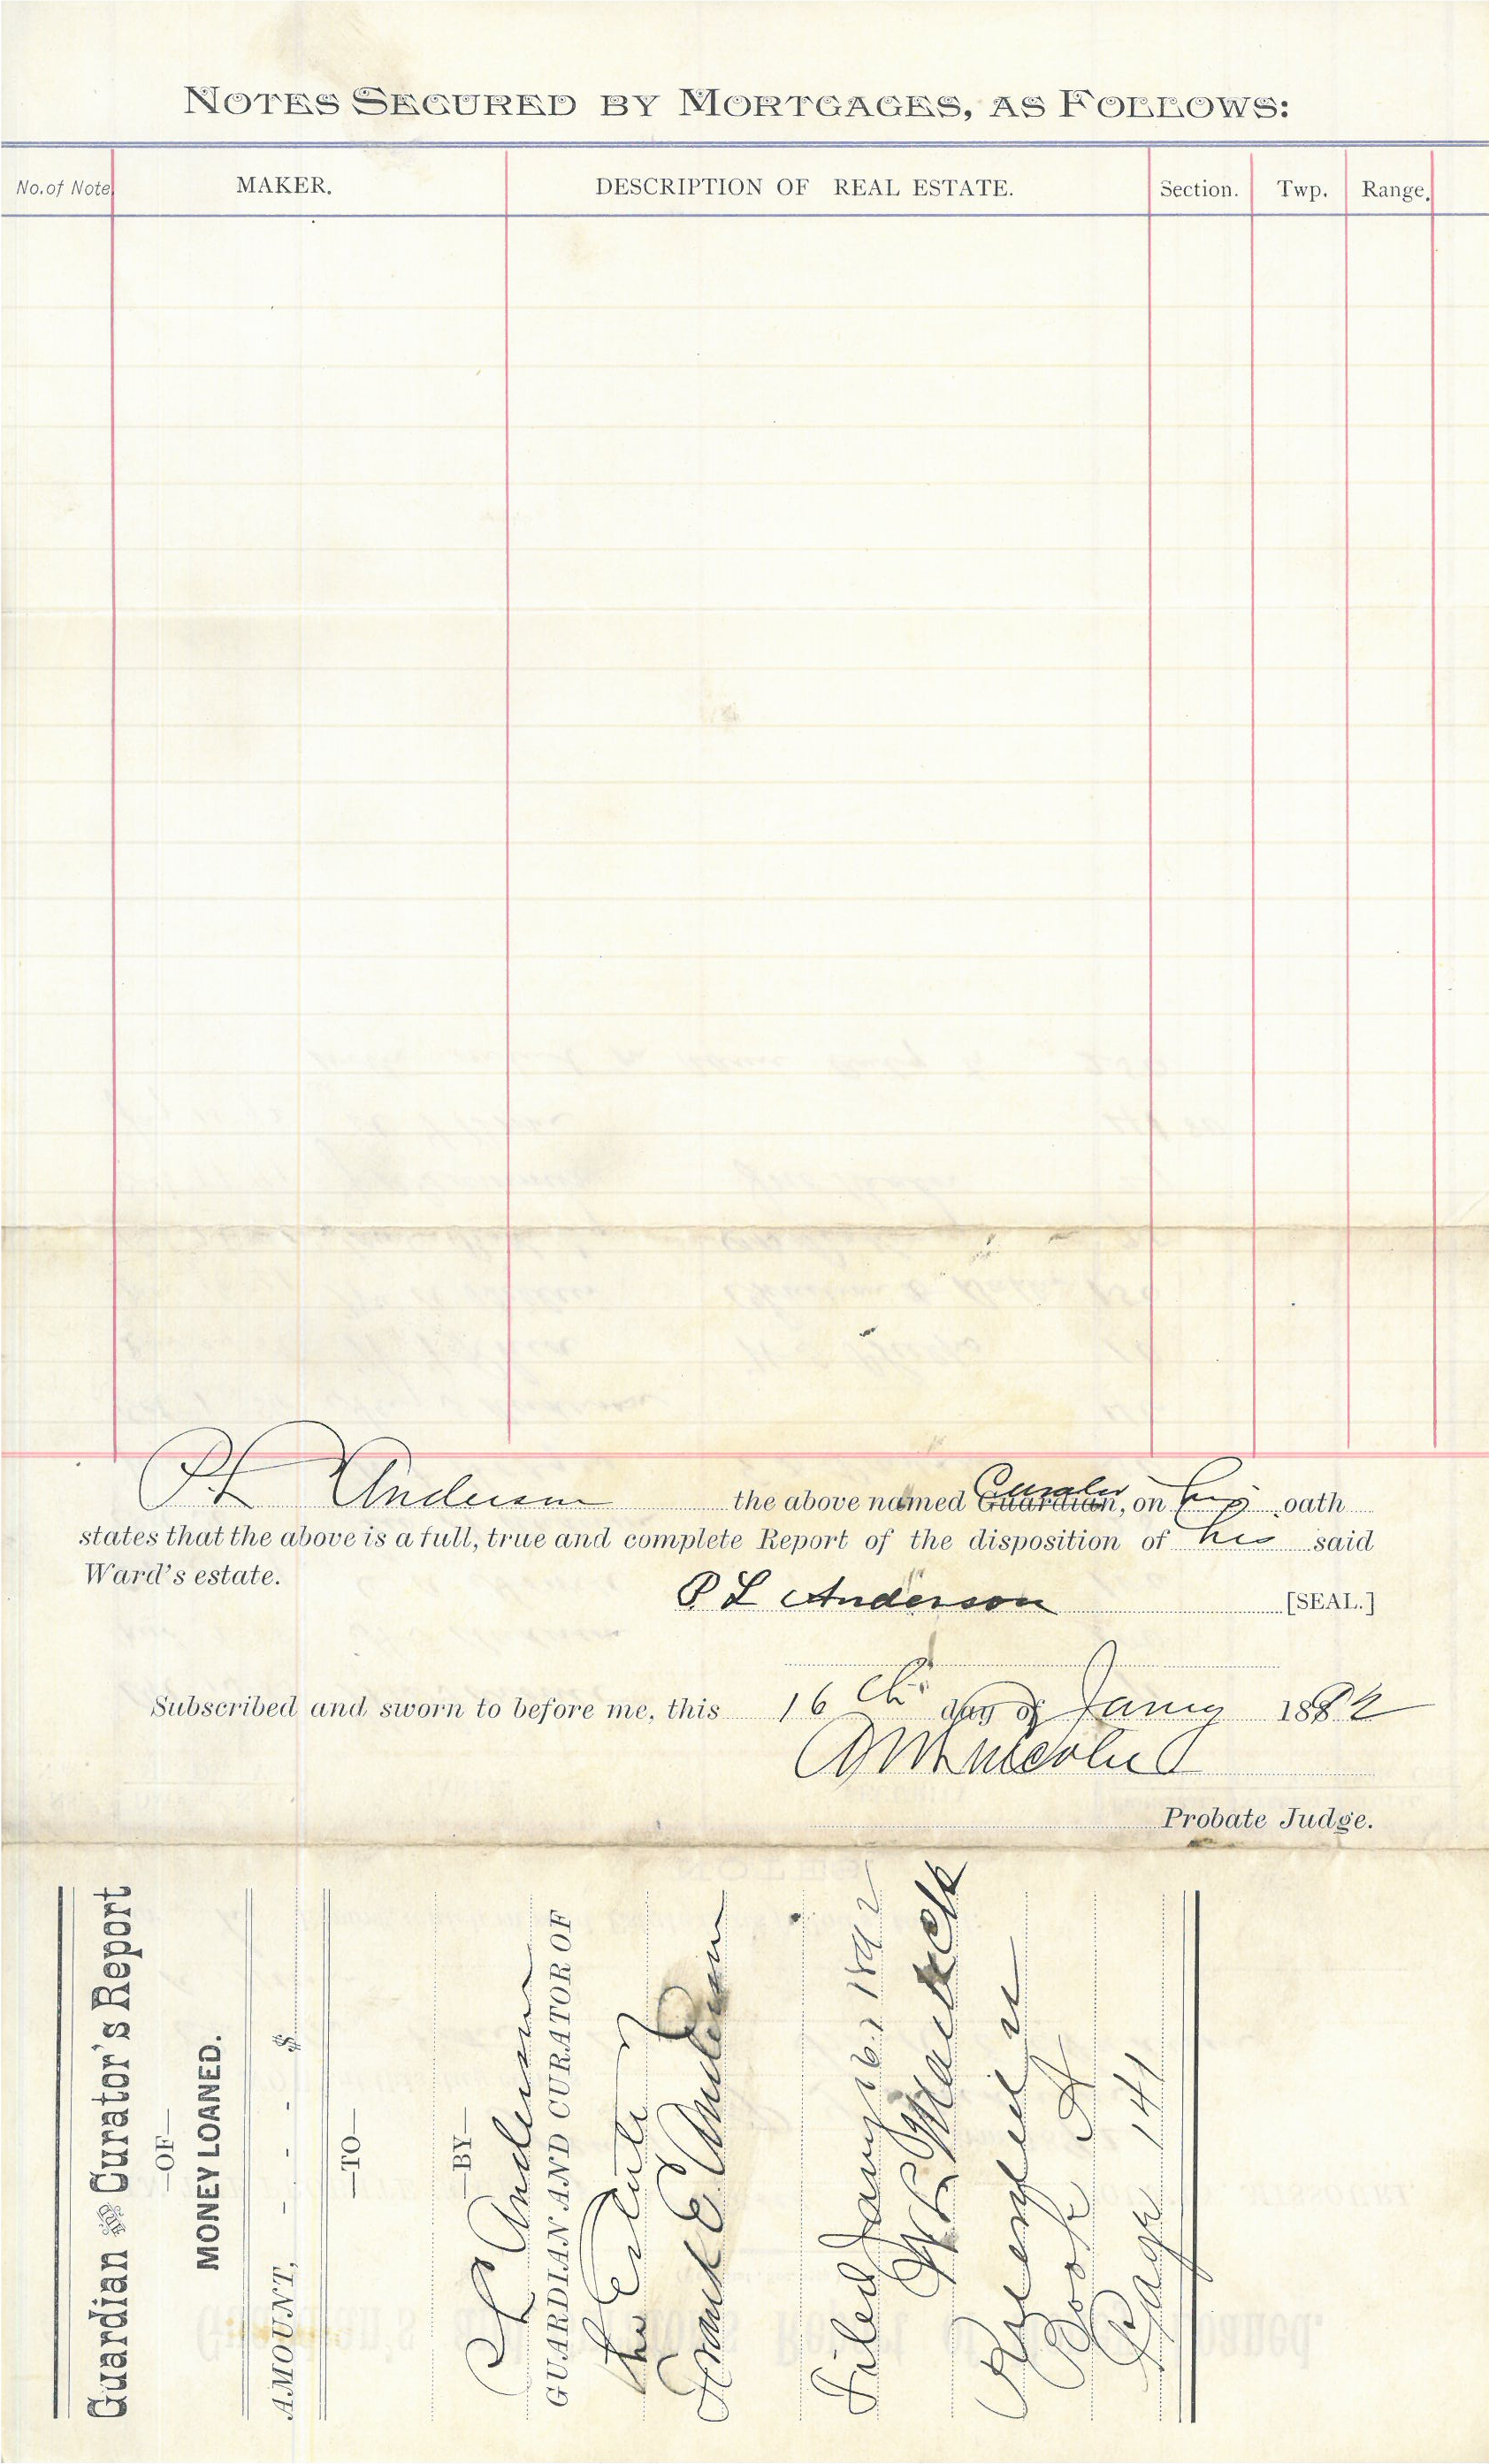 NOTES SECURED BY MORTGAGES, AS FOLLOWS:
No. of Note MAKER. DESCRIPTION OF REAL ESTATE. Section. Twp. Range.
P L Anderson the above named Guardian, Curator on his oath
states that the above is a full, true and complete Report of the disposition of his said
Ward's estate.
P L Anderson [SEAL.]
Subscribed and sworn to before me, this 16th day of Jany 1892
Probate Judge.
Guardian & Curator's Report
—OF—
MONEY LOANED.
AMOUNT, - - - - $
—TO—
—BY—
P L Anderson
GUARDIAN AND CURATOR OF
the Estate of
Frank E Anderson
Filed Jany 16, 1892
Clk
Book A
Page 141